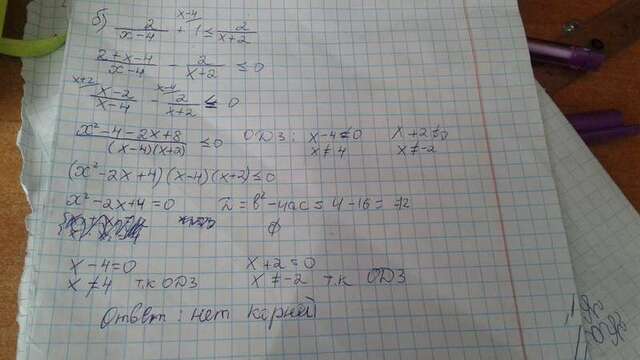 б) 2/(x-4) + 1 ≤ 2/(x+2)
(2+x-4)/(x-4) - 2/(x+2) ≤ 0
(x-2)/(x-4) - 2/(x+2) ≤ 0
(x²-4-2x+8)/((x-4)(x+2)) ≤ 0 ОДЗ: x-4≠0 x+2≠0
x≠4 x≠-2
(x²-2x+4)(x-4)(x+2)≤0
x²-2x+4=0 D=b²-4ac=4-16=-12
∅
x-4=0 x+2=0
x≠4 т.к ОДЗ x≠-2 т.к ОДЗ
Ответ: нет корней